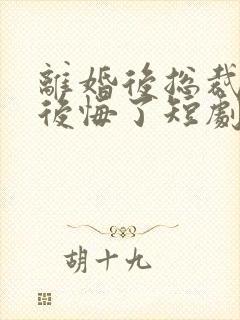 離婚後总裁
後悔了短劇
胡十九